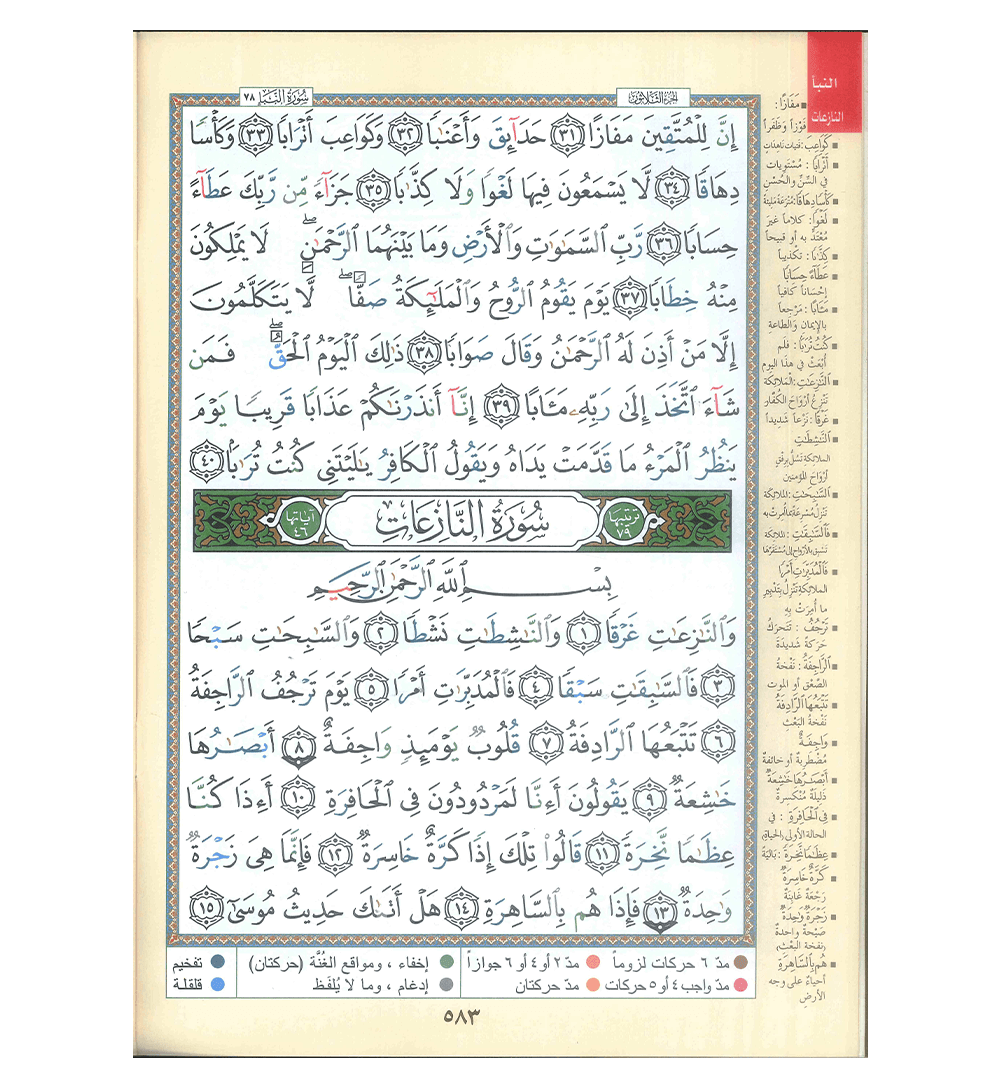 النبأ
النازعات
سُورَةُ النَّبَإِ ٧٨
الجُزءُ الثَّلَاثُونَ
إِنَّ لِلْمُتَّقِينَ مَفَازًا ٣١ حَدَآئِقَ وَأَعْنَٰبًا ٣٢ وَكَوَاعِبَ أَتْرَابًا ٣٣ وَكَأْسًا
دِهَاقًا ٣٤ لَّا يَسْمَعُونَ فِيهَا لَغْوًا وَلَا كِذَّٰبًا ٣٥ جَزَآءً مِّن رَّبِّكَ عَطَآءً
حِسَابًا ٣٦ رَّبِّ ٱلسَّمَٰوَٰتِ وَٱلْأَرْضِ وَمَا بَيْنَهُمَا ٱلرَّحْمَٰنِ ۖ لَا يَمْلِكُونَ
مِنْهُ خِطَابًا ٣٧ يَوْمَ يَقُومُ ٱلرُّوحُ وَٱلْمَلَٰٓئِكَةُ صَفًّا ۖ لَّا يَتَكَلَّمُونَ
إِلَّا مَنْ أَذِنَ لَهُ ٱلرَّحْمَٰنُ وَقَالَ صَوَابًا ٣٨ ذَٰلِكَ ٱلْيَوْمُ ٱلْحَقُّ ۖ فَمَن
شَآءَ ٱتَّخَذَ إِلَىٰ رَبِّهِۦ مَـَٔابًا ٣٩ إِنَّآ أَنذَرْنَٰكُمْ عَذَابًا قَرِيبًا يَوْمَ
يَنظُرُ ٱلْمَرْءُ مَا قَدَّمَتْ يَدَاهُ وَيَقُولُ ٱلْكَافِرُ يَٰلَيْتَنِى كُنتُ تُرَٰبًۢا ٤٠
ترتيبها ٧٩ سُورَةُ النَّازِعَاتِ آياتها ٤٦
بِسْمِ ٱللَّهِ ٱلرَّحْمَٰنِ ٱلرَّحِيمِ
وَٱلنَّٰزِعَٰتِ غَرْقًا ١ وَٱلنَّٰشِطَٰتِ نَشْطًا ٢ وَٱلسَّٰبِحَٰتِ سَبْحًا
٣ فَٱلسَّٰبِقَٰتِ سَبْقًا ٤ فَٱلْمُدَبِّرَٰتِ أَمْرًا ٥ يَوْمَ تَرْجُفُ ٱلرَّاجِفَةُ
٦ تَتْبَعُهَا ٱلرَّادِفَةُ ٧ قُلُوبٌ يَوْمَئِذٍ وَاجِفَةٌ ٨ أَبْصَٰرُهَا
خَٰشِعَةٌ ٩ يَقُولُونَ أَءِنَّا لَمَرْدُودُونَ فِى ٱلْحَافِرَةِ ١٠ أَءِذَا كُنَّا
عِظَٰمًا نَّخِرَةً ١١ قَالُوا۟ تِلْكَ إِذًا كَرَّةٌ خَاسِرَةٌ ١٢ فَإِنَّمَا هِىَ زَجْرَةٌ
وَٰحِدَةٌ ١٣ فَإِذَا هُم بِٱلسَّاهِرَةِ ١٤ هَلْ أَتَىٰكَ حَدِيثُ مُوسَىٰٓ ١٥
مَفَازًا :
فَوْزاً وَظَفَراً
كَوَاعِبَ : فتيات ناهدات
أَتْرَابًا : مُسْتَوِيات
في السِّنِّ والحُسْن
كَأْسًا دِهَاقًا : مُتْرَعَة مَلِيئة
لَغْوًا : كلاماً غير
مُعْتَدٍّ به أو قبيحاً
كِذَّٰبًا : تكذيباً
عَطَآءً حِسَابًا
إِحْسَاناً كافياً
مَـَٔابًا : مَرْجِعاً
بالإيمان والطاعة
كُنتُ تُرَٰبًا : فلم
أُبْعَث في هذا اليوم
ٱلنَّٰزِعَٰتِ : الملائكة
تَنْزِعُ أرْوَاحَ الكُفَّار
غَرْقًا : نَزْعاً شَدِيداً
ٱلنَّٰشِطَٰتِ
الملائكة تَسُلُّ بِرِفْقٍ
أرْوَاحَ المؤمنين
ٱلسَّٰبِحَٰتِ : الملائكة
تَنْزِلُ مُسْرِعَةً بما أُمِرَتْ به
فَٱلسَّٰبِقَٰتِ : الملائكة
تسبق بالأرواح إلى مُسْتَقَرِّها
فَٱلْمُدَبِّرَٰتِ أَمْرًا
الملائكة تَنْزِلُ بتدبير
ما أُمِرَتْ بِهِ
تَرْجُفُ : تَتَحَرَّكُ
حَرَكَةً شَدِيدَةً
ٱلرَّاجِفَةُ : نَفْخَةُ
الصَّعْق أو الموت
تَتْبَعُهَا ٱلرَّادِفَةُ
نَفْخَةُ البَعْث
وَاجِفَةٌ
مُضْطَرِبَة أو خائفة
أَبْصَٰرُهَا خَٰشِعَةٌ
ذَلِيلَةٌ مُنْكَسِرةٌ
فِى ٱلْحَافِرَةِ : في
الحالة الأولى (الحياة)
عِظَٰمًا نَّخِرَةً : بَالِيَةً
كَرَّةٌ خَاسِرَةٌ
رَجْعَةٌ غَابِنَةٌ
زَجْرَةٌ وَٰحِدَةٌ
صَيْحَةٌ واحدةٌ
(نفخة البعث)
هُم بِٱلسَّاهِرَةِ
أحياءٌ على وجه
الأرضِ
مدّ ٦ حركات لزوماً مدّ ٢ أو ٤ أو ٦ جوازاً إخفاء ، ومواقع الغُنَّة (حركتان) تفخيم
مدّ واجب ٤ أو ٥ حركات مدّ حركتان إدغام ، وما لا يُلفَظ قلقلة
٥٨٣